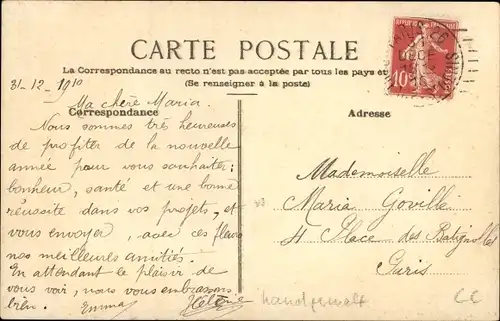 CARTE POSTALE
La Correspondance au recto n'est pas acceptée par tous les pays et
(Se renseigner à la poste)
RÉPUBLIQUE FRANÇAISE
10
31-12-1910
Ma chère Maria.
Correspondance
Nous sommes très heureuses
de profiter de la nouvelle
année pour vous souhaiter:
bonheur, santé et une bonne
réussite dans vos projets, et
vous envoyer, avec ces fleurs
nos meilleures amitiés.
En attendant le plaisir de
vous voir, nous vous embrassons
bien. Emma
Adresse
Mademoiselle
Maria Goville
Place des Batignolles
Paris
handgemalt
CC